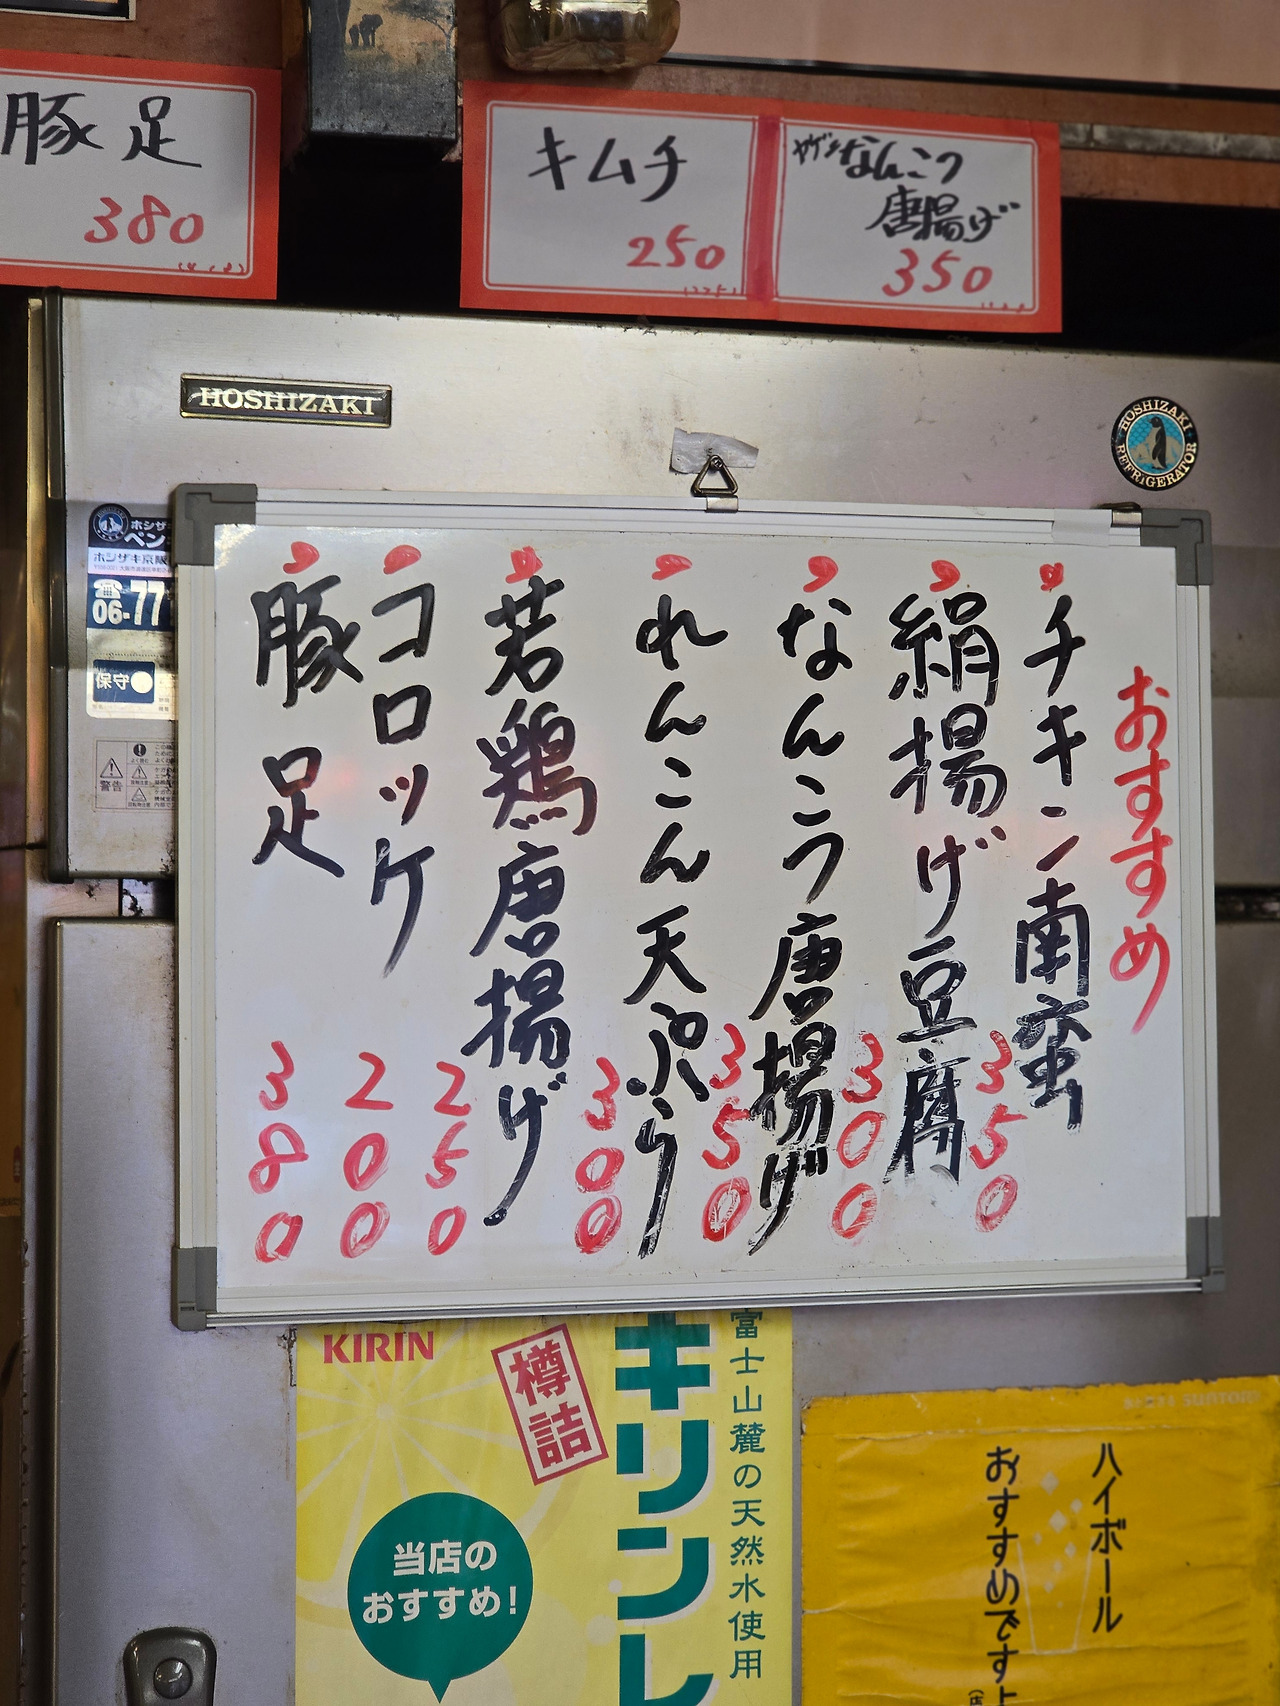 豚足
380
キムチ
250
ヤゲンなんこつ
唐揚げ
350
HOSHIZAKI
HOSHIZAKI
REFRIGERATOR
おすすめ
チキン南蛮
350
絹揚げ豆腐
300
なんこつ唐揚げ
350
れんこん天ぷら
300
若鶏唐揚げ
250
コロッケ
200
豚足
380
ホシザ
ペン
ホシザキ京阪
06-77
保守
警告
KIRIN
樽詰
キリンレ
富士山麓の天然水使用
当店の
おすすめ!
SUNTORY
ハイボール
おすすめです